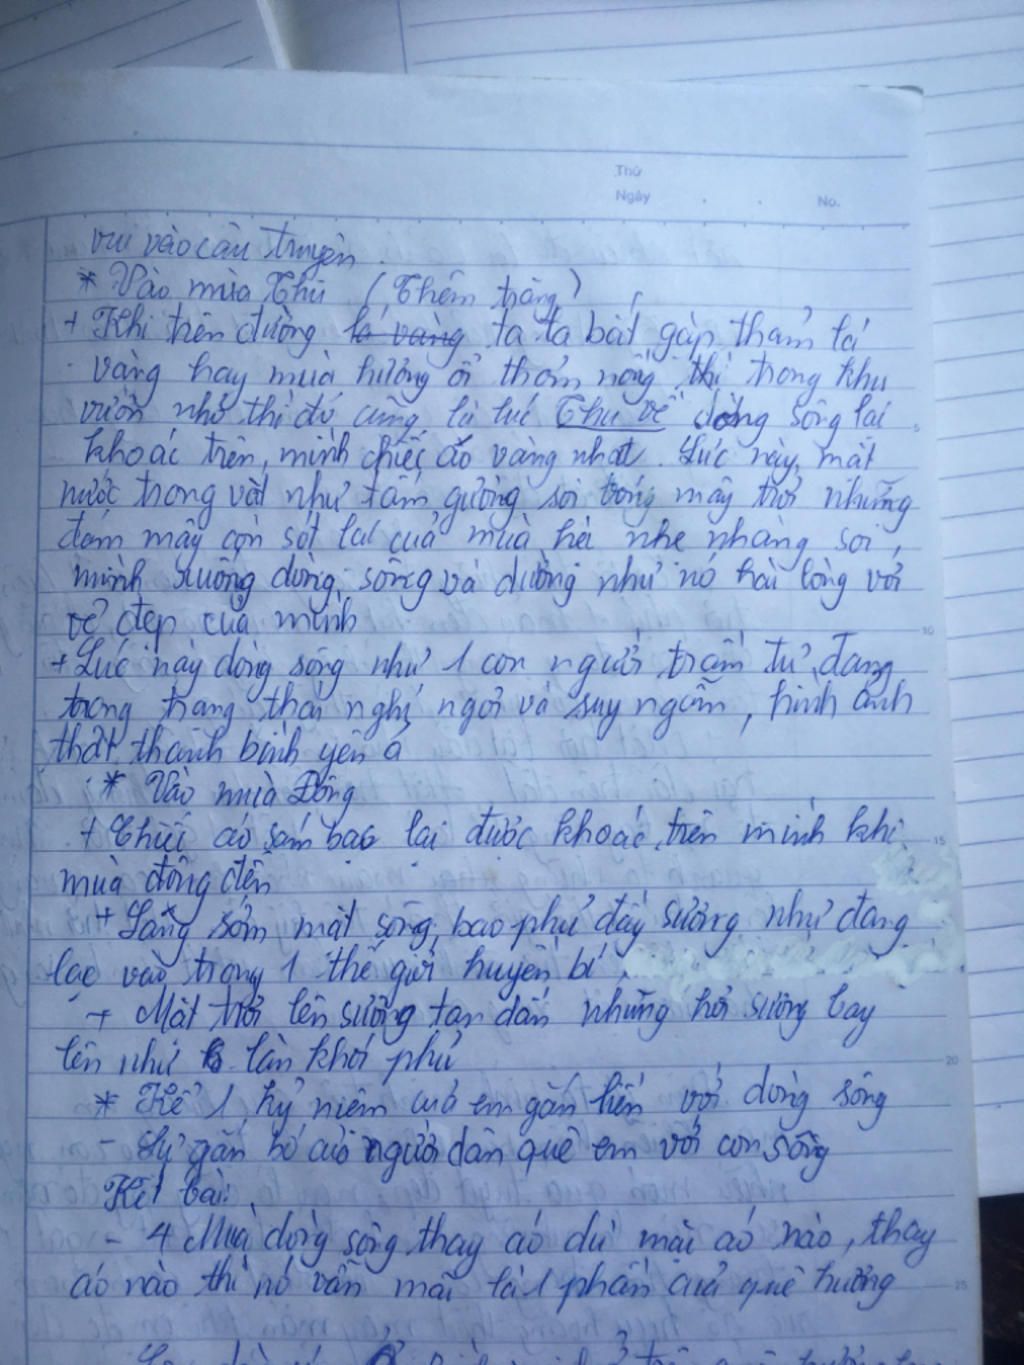 Thứ
Ngày
No.
vui vào câu truyện.
* Vào mùa Thu (Thêm trăng)
+ Khi trên đường lá vàng ta ta bắt gặp thảm lá
vàng hay mùa hương ổi thơm nồng thì trong khu
vườn nhỏ thì đó cũng là lúc Thu về dòng sông lại
khoác trên mình chiếc áo vàng nhạt. Lúc này, mặt
nước trong vắt như tấm gương soi trong mây trời những
đám mây còn sót lại của mùa hè nhẹ nhàng soi
mình xuống dòng sông và dường như nó hài lòng với
vẻ đẹp của mình
+ Lúc này dòng sông như 1 con người trầm tư đang
trong trạng thái nghỉ ngơi và suy ngẫm, hình ảnh
thật thanh bình yên ả
* Vào mùa Đông
+ Chiếc áo sám bạc lại được khoác trên mình khi
mùa đông đến
+ Sáng sớm mặt sông bao phủ đầy sương như đang
lạc vào trong 1 thế giới huyền bí
+ Mặt trời lên sương tan dần những hơi sương bay
lên như làn khói phủ
* Kể 1 kỷ niệm của em gắn liền với dòng sông
- Sự gắn bó của người dân quê em với con sông
Kết bài:
- 4 Mùa dòng sông thay áo dù mài áo nào, thay
áo nào thì nó vẫn mãi là 1 phần của quê hương